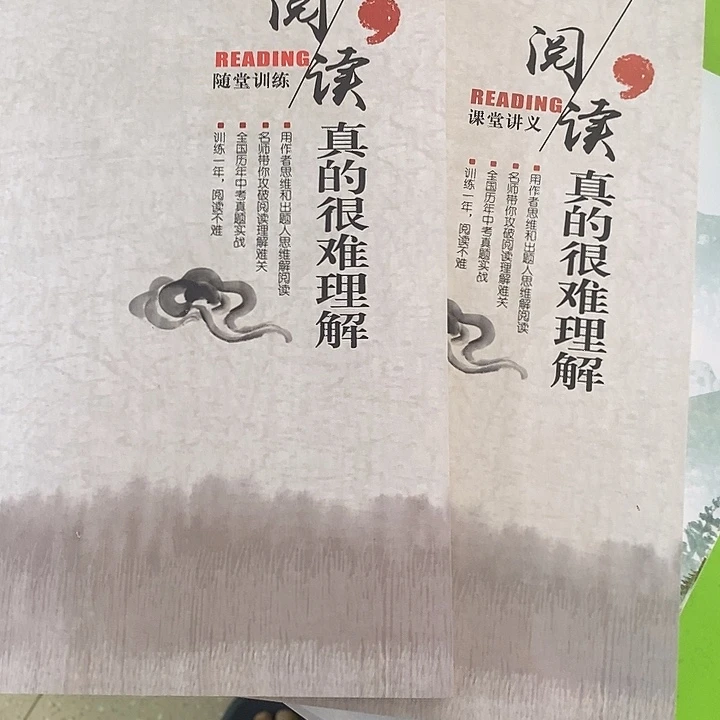 阅读
READING
随堂训练
真的很难理解
用作者思维和出题人思维解阅读
名师带你攻破阅读理解难关
全国历年中考真题实战
训练一年，阅读不难
阅读
READING
课堂讲义
真的很难理解
用作者思维和出题人思维解阅读
名师带你攻破阅读理解难关
全国历年中考真题实战
训练一年，阅读不难